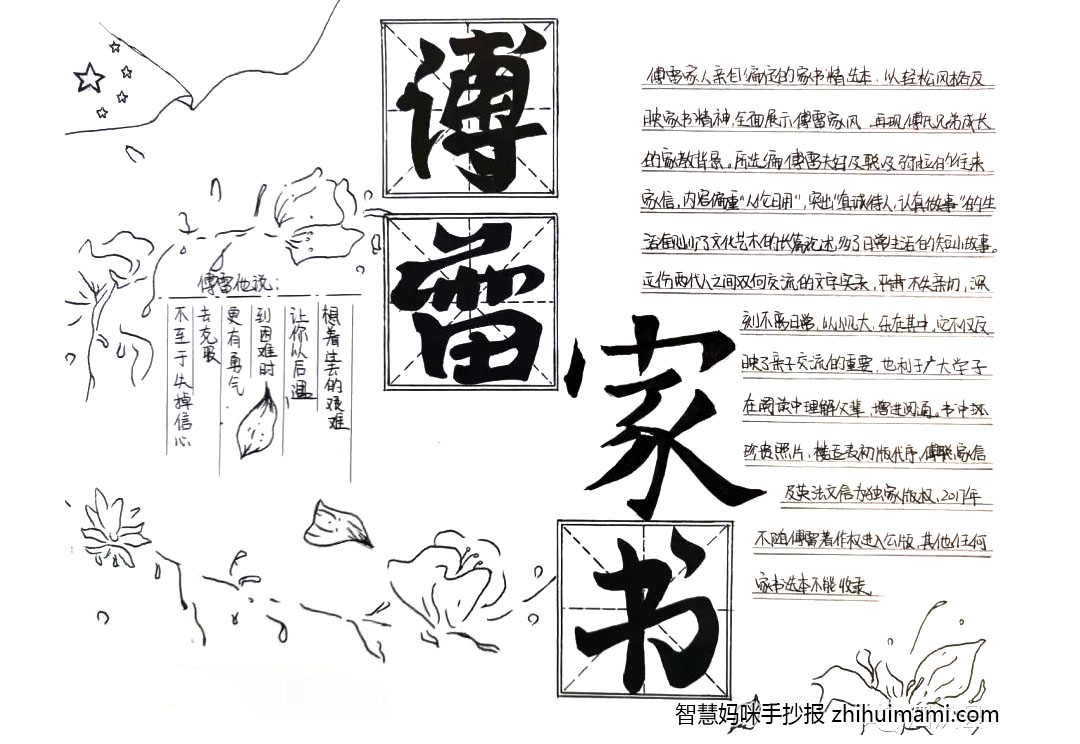 傅
雷
家
书
傅雷他说：
想着过去的艰难
让你以后遇
到困难时
更有勇气
去克服
不至于失掉信心
傅雷家人亲自编定的家书精选本，以轻松风格反
映家书精神，全面展示傅雷家风，再现傅氏兄弟成长
的家教背景。所选编傅雷夫妇及聪及弥拉的往来
家信，内容偏重“人伦日用”，突出“真诚待人，认真做事”的生
活，文化艺术的长篇论述，多了日常生活的短小故事。
这份两代人之间双向交流的文字实录，平常不失亲切，深
刻不离日常，以小见大，乐在其中，它不仅反
映了亲子交流的重要，也利于广大学子
在阅读中理解父辈，增进沟通。书中环
珍贵照片，楼适夷初版代序，傅聪家信
及英法文信为独家版权，2017年
不随傅雷著作权进入公版，其他任何
家书选本不能收录
智慧妈咪手抄报 zhihuimami.com